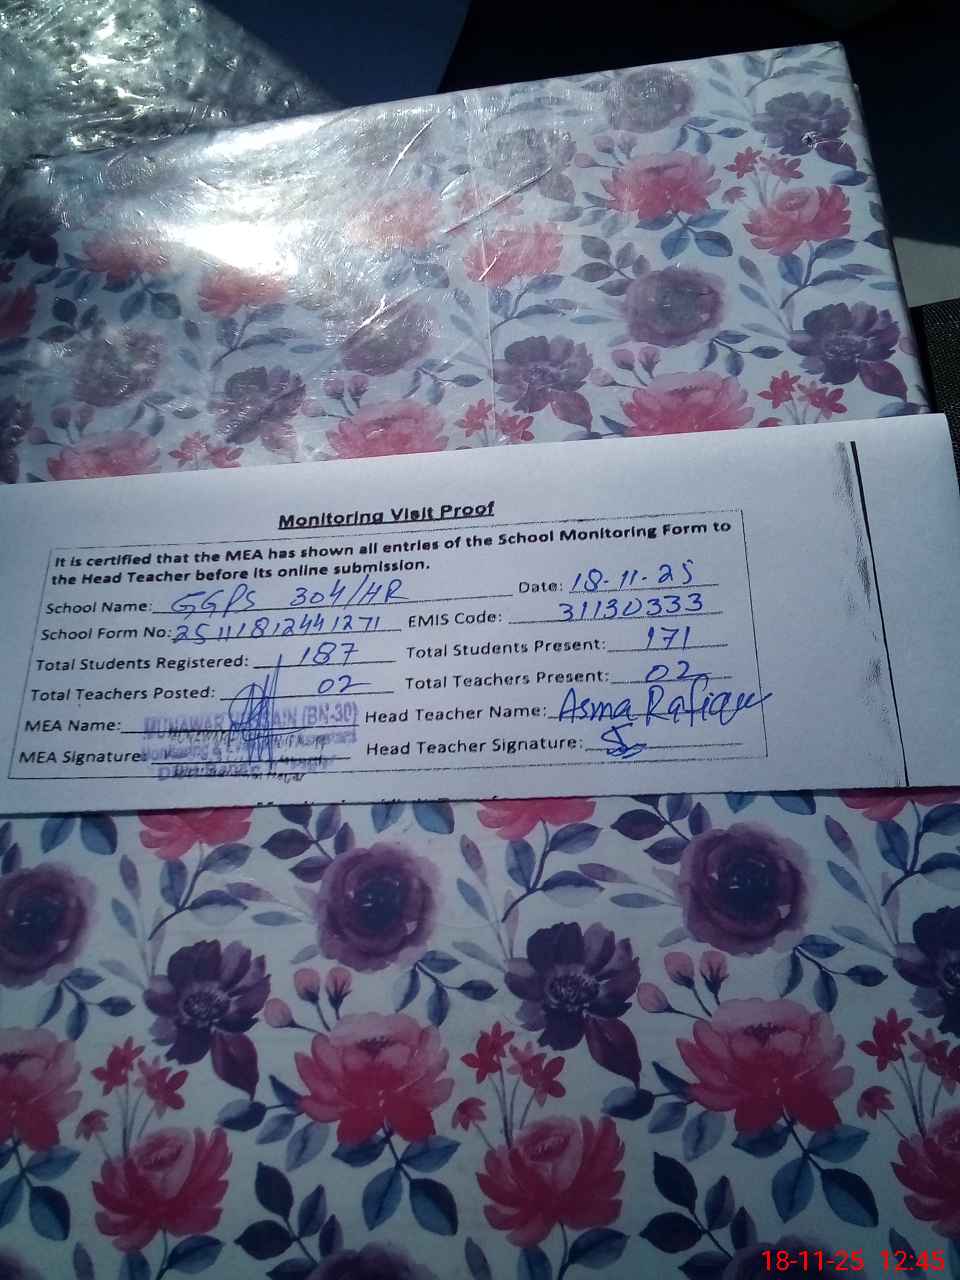 Monitoring Visit Proof
It is certified that the MEA has shown all entries of the School Monitoring Form to
the Head Teacher before its online submission.
School Name: GGPS 304/HR Date: 18-11-25
School Form No: 2511181244 1271 EMIS Code: 31130333
Total Students Registered: 187 Total Students Present: 171
Total Teachers Posted: 02 Total Teachers Present: 02
MEA Name: MUNAWAR HUSSAIN (BN-30) Head Teacher Name: Asma Rafique
MEA Signature: Head Teacher Signature:
18-11-25 12:45